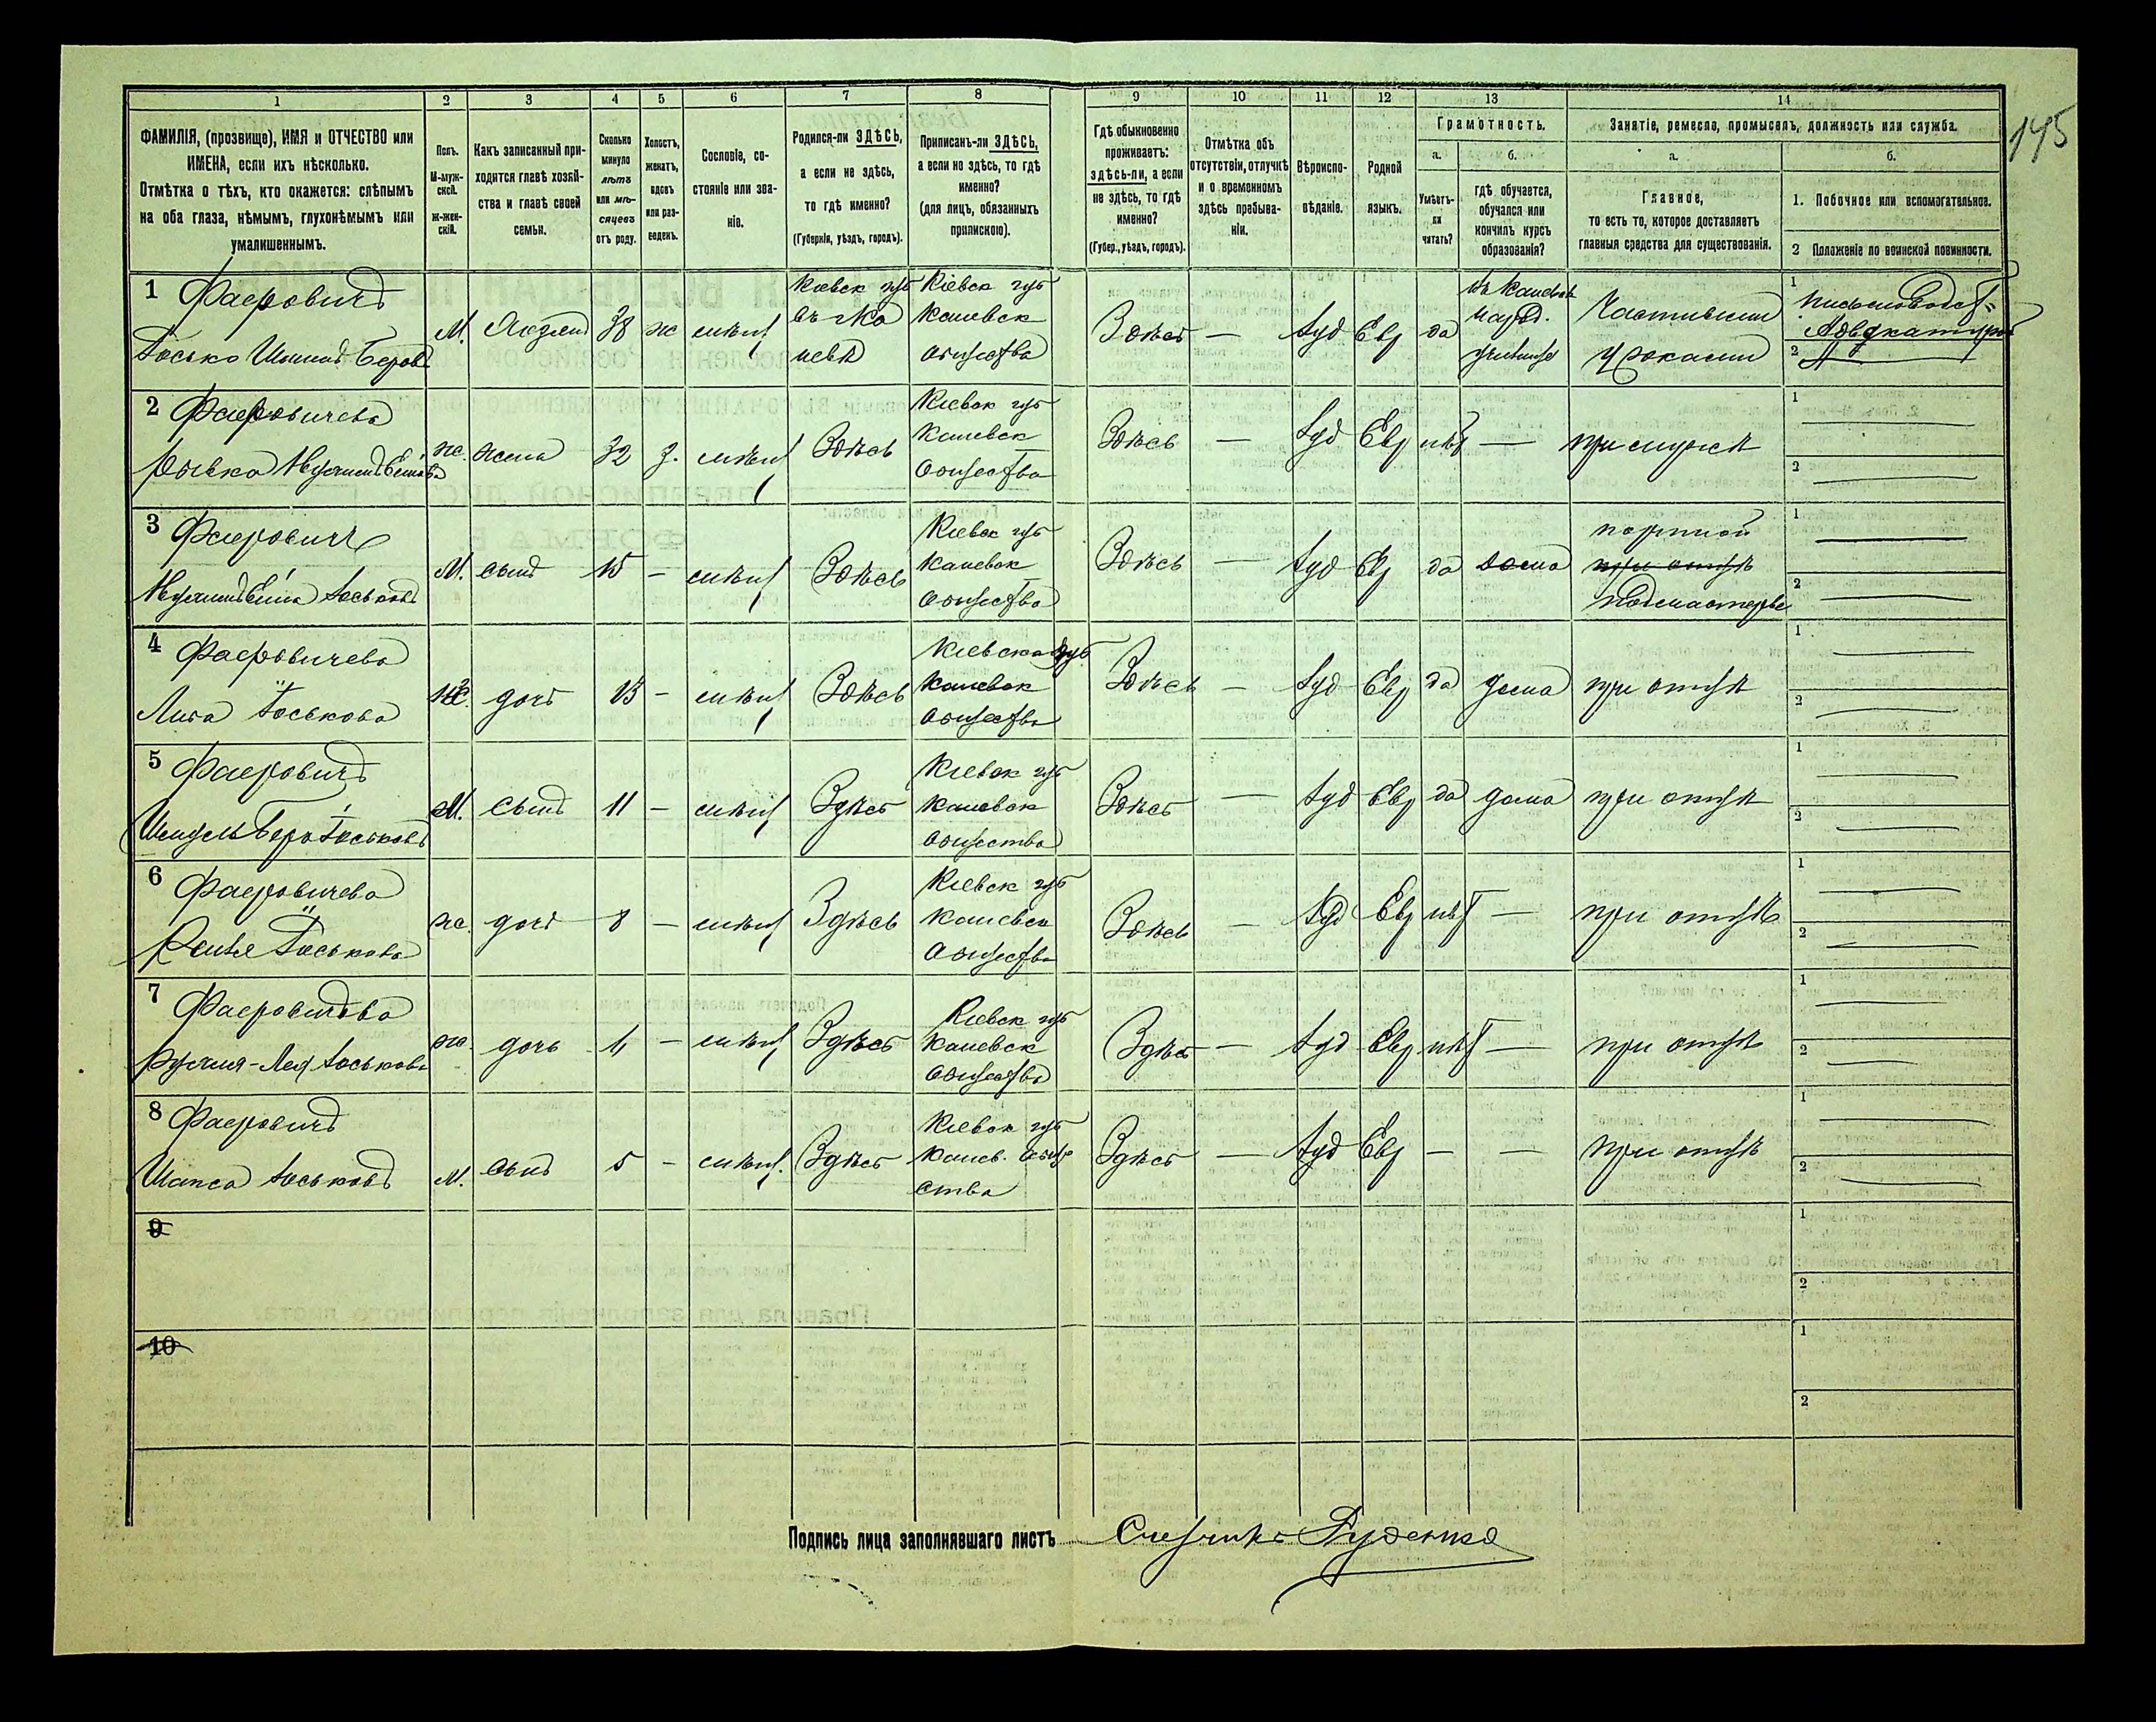 145
1 2 3 4 5 6 7 8 9 10 11 12 13 14
ФАМИЛІЯ, (прозвище), ИМЯ и ОТЧЕСТВО или
ИМЕНА, если ихъ нѣсколько.
Отмѣтка о тѣхъ, кто окажется: слѣпымъ
на оба глаза, нѣмымъ, глухонѣмымъ или
умалишеннымъ.
Полъ.
М-муж-
ской.
ж-жен-
скій.
Какъ записанный при-
ходится главѣ хозяй-
ства и главѣ своей
семьи.
Сколько
минуло
лѣтъ
или мѣ-
сяцевъ
отъ роду.
Холостъ,
женатъ,
вдовъ
или раз-
веденъ.
Сословіе, со-
стояніе или зва-
ніе.
Родился-ли ЗДѢСЬ,
а если не здѣсь,
то гдѣ именно?
(Губернія, уѣздъ, городъ).
Приписанъ-ли ЗДѢСЬ,
а если не здѣсь, то гдѣ
именно?
(для лицъ, обязанныхъ
припискою).
Гдѣ обыкновенно
проживаетъ:
здѣсь-ли, а если
не здѣсь, то гдѣ
именно?
(Губер., уѣздъ, городъ).
Отмѣтка объ
отсутствіи, отлучкѣ
и о временномъ
здѣсь пребыва-
ніи.
Вѣроиспо-
вѣданіе.
Родной
языкъ.
Грамотность.
а.
Умѣетъ-
ли
читать?
б.
гдѣ обучается,
обучался или
кончилъ курсъ
образованія?
Занятіе, ремесло, промыселъ, должность или служба.
а.
Главное,
то есть то, которое доставляетъ
главныя средства для существованія.
б.
1. Побочное или вспомогательное.
2 Положеніе по воинской повинности.
1 Фаеровичъ
М. 38 ж мѣщ
Кіевск губ
Кіевск губ
Каневск
общества
Здѣсь — Іуд Евр да
народ.
училищѣ
Частными
1
2
2 Фаеровичева
ж. жена 32 з. мѣщ Здѣсь
Кіевск губ
Каневск
общества
Здѣсь — Іуд Евр нѣт — при мужѣ
1
2
3 Фаеровичъ
М. сынъ 15 — мѣщ Здѣсь
Кіевск губ
Каневск
общества
Здѣсь — Іуд Евр да дома
портной
при отцѣ
подмастерье
1
2
4 Фаеровичева
Либа Іоськова
ж. дочь 13 — мѣщ Здѣсь
Кіевска губ
Каневск
общества
Здѣсь — Іуд Евр да дома при отцѣ
1
2
5 Фаеровичъ
М. сынъ 11 — мѣщ Здѣсь
Кіевск губ
Каневск
общества
Здѣсь — Іуд Евр да дома при отцѣ
1
2
6 Фаеровичева
Іоськова
ж. дочь 8 — мѣщ Здѣсь
Кіевск губ
Каневск
общества
Здѣсь — Іуд Евр нѣт — при отцѣ
1
2
7 Фаеровичева
Іоськова
ж. дочь — мѣщ Здѣсь
Кіевск губ
Каневск
общества
Здѣсь — Іуд Евр нѣт — при отцѣ
1
2
8 Фаеровичъ
Іоськовъ
М. сынъ 5 — мѣщ. Здѣсь
Кіевск губ
Канев. обще
ства
Здѣсь — Іуд Евр — — при отцѣ
1
2
9
1
2
10
1
2
Подпись лица заполнявшаго листъ Счетчикъ Руденко